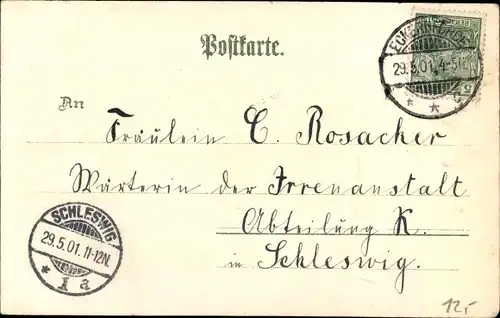 Postkarte.
ECKERNFÖRDE
29.5.01. 4-5N.
* * c
An
Fräulein C. Rosacher
Wärterin der Irrenanstalt
Abteilung K.
in Schleswig.
SCHLESWIG
29.5.01. 11-12N.
* 1 a
12,-